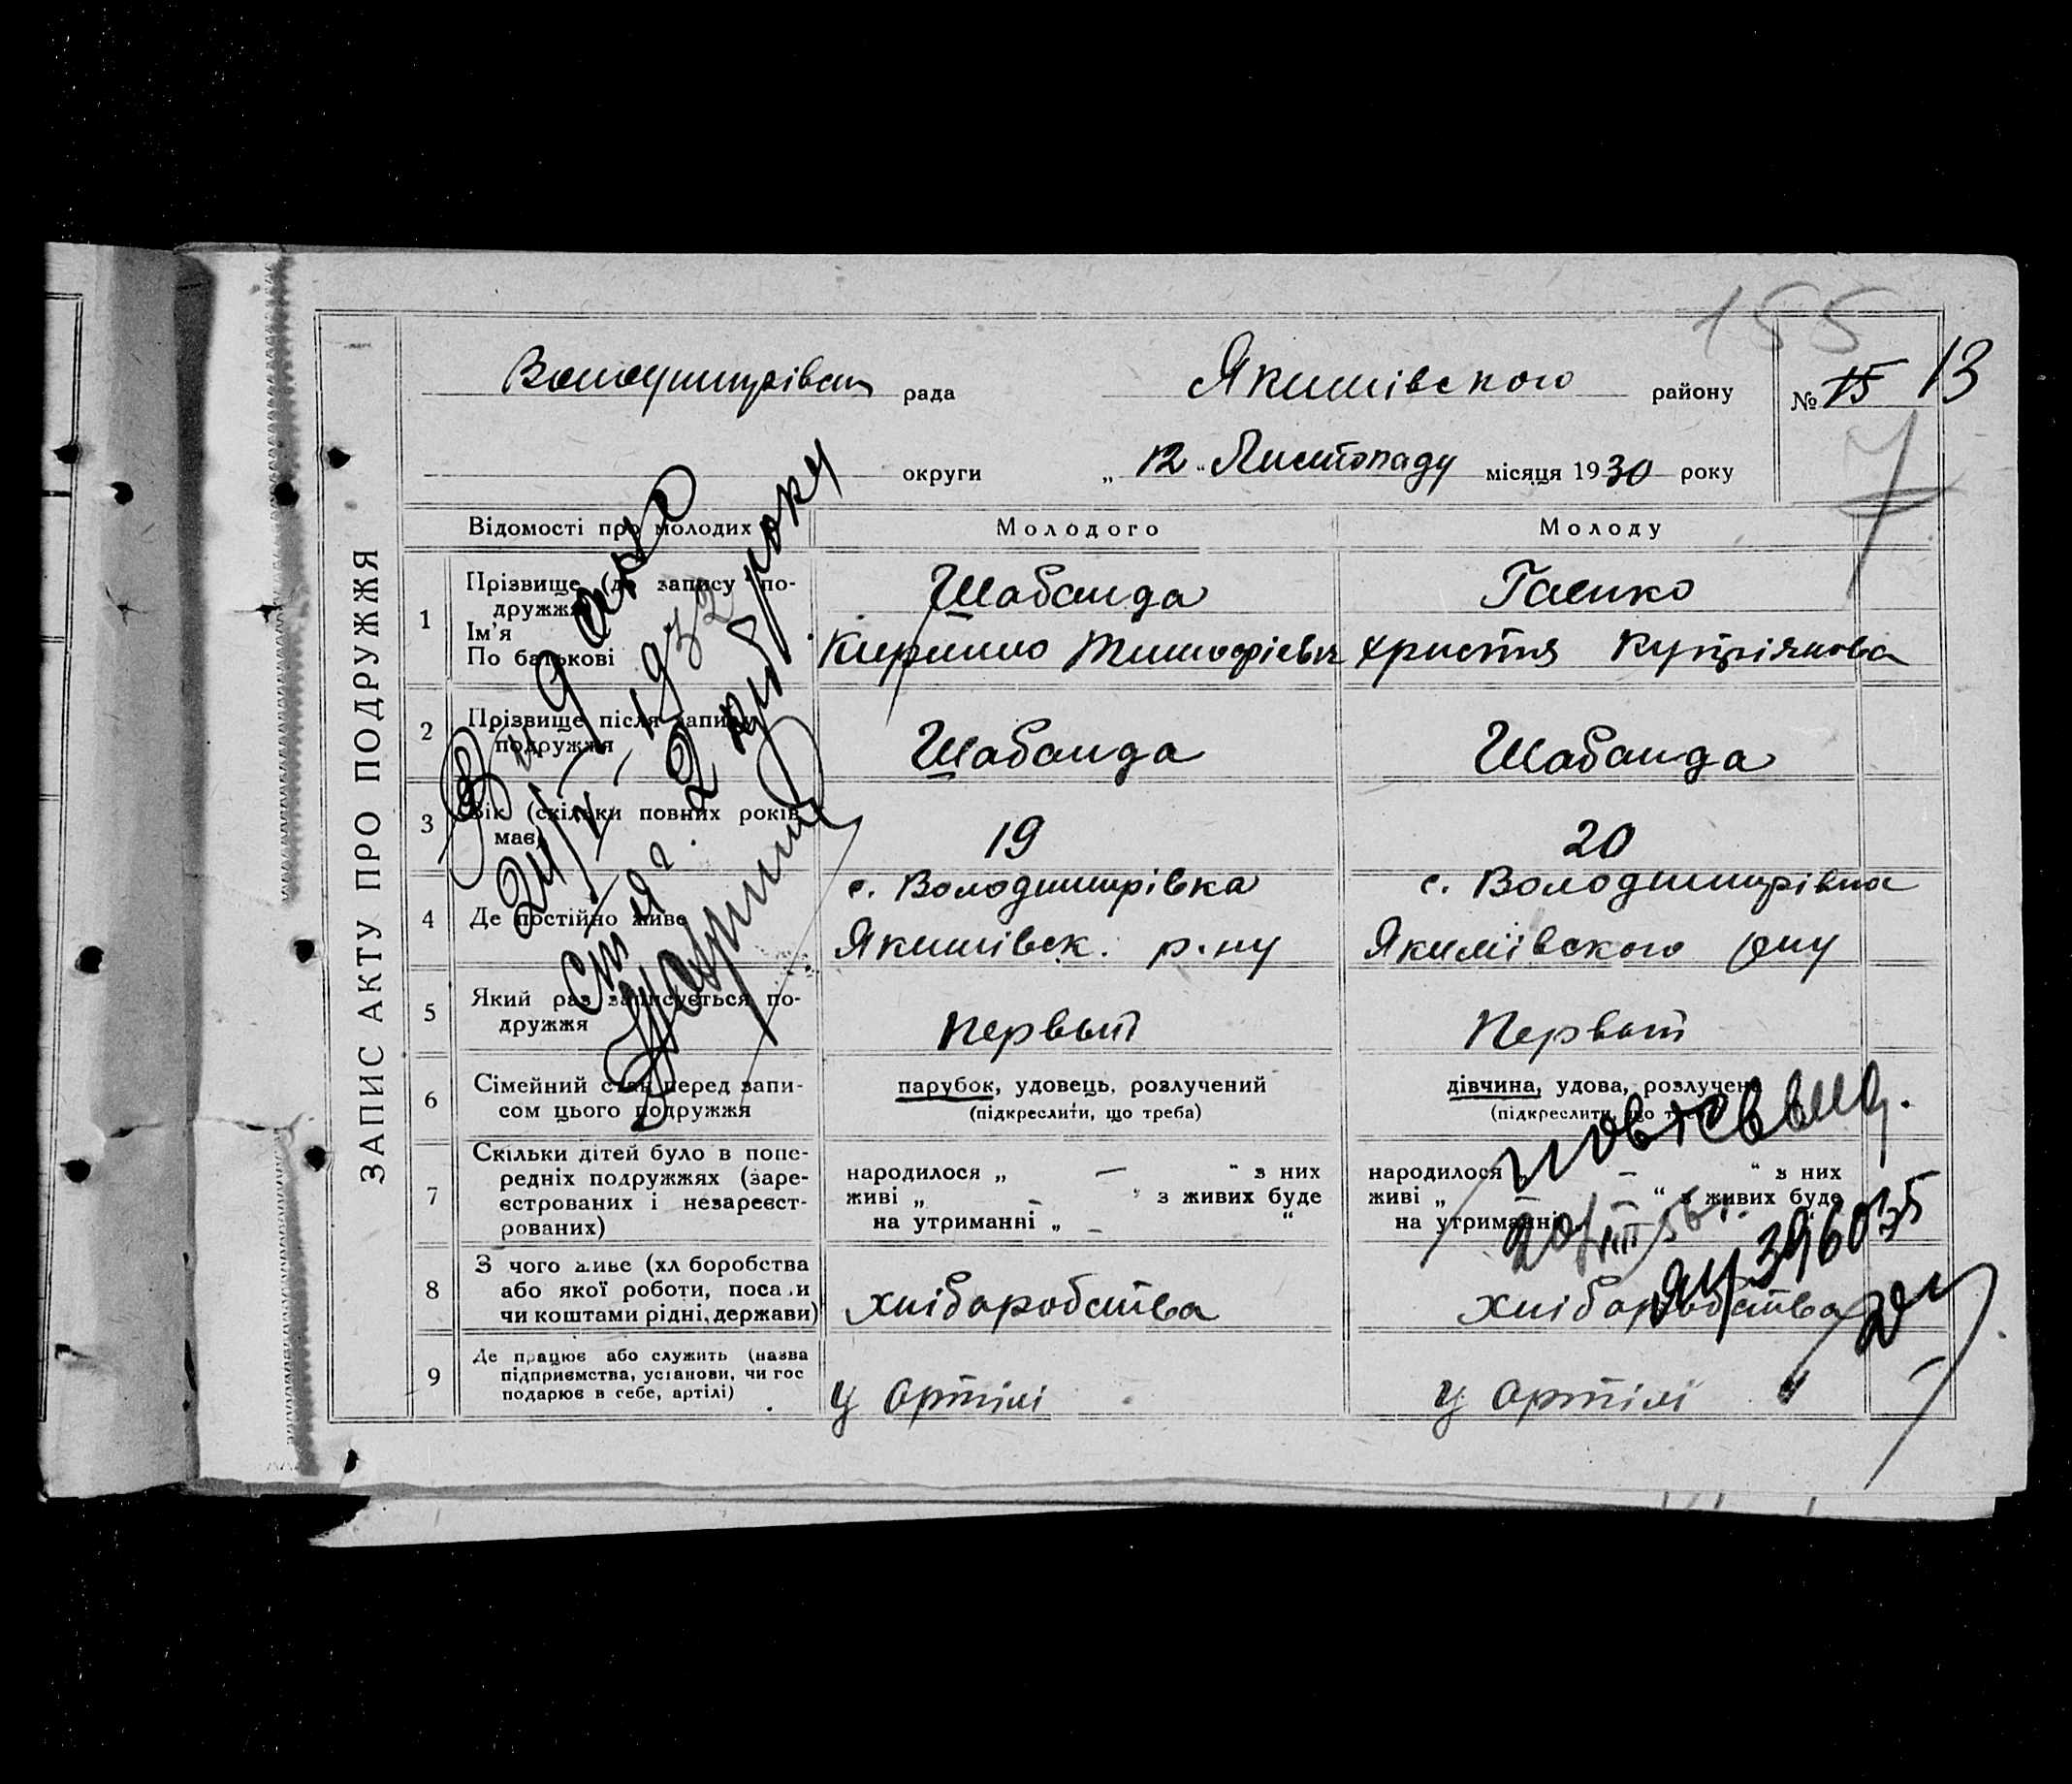 155
рада Якимівського району № 15 13
округи „ 12 " Листопаду місяця 1930 року
7
ЗАПИС АКТУ ПРО ПОДРУЖЖЯ
Відомості про молодих Молодого Молоду
1 Прізвище (до запису по-
дружжя Шабанда Галико
Ім'я
По батькові Кирилло Тимофієвич Христя Купріянова
2 Прізвище після запису
подружжя Шабанда Шабанда
3 Вік (скільки повних років
має) 19 20
4 Де постійно живе с. Володимирівка с. Володимирівка
Якимівськ. р-ну Якимівського р-ну
5 Який раз записується по-
дружжя Первый Первый
6 Сімейний стан перед запи-
сом цього подружжя
парубок, удовець, розлучений
(підкреслити, що треба)
дівчина, удова, розлучена
(підкреслити, що треба)
7 Скільки дітей було в попе-
редніх подружжях (заре-
єстрованих і незареєст-
рованих)
народилося „ — " з них
живі „ – " з живих буде
на утриманні „ – "
народилося „ – " з них
живі „ – " з живих буде
на утриманні „ – "
8 З чого живе (хл боробства
або якої роботи, поса и
чи коштами рідні, держави)
хлібаробства хлібаробства
9 Де працює або служить (назва
підприємства, установи, чи гос
подарює в себе, артілі)
у Артілі у Артілі
24/X – 1932
року
396035